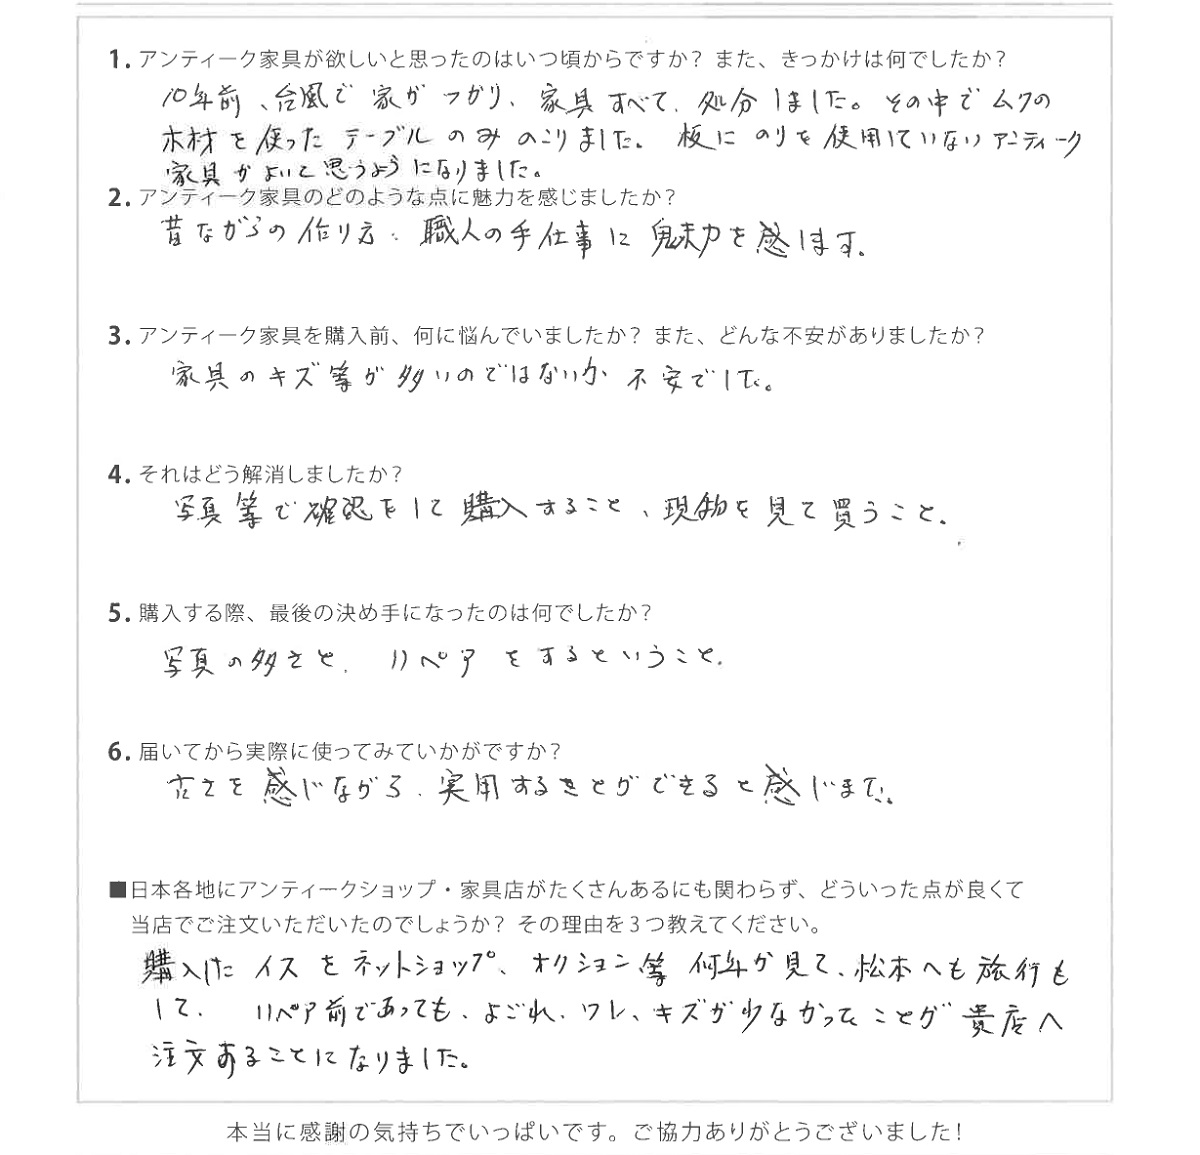 1. アンティーク家具が欲しいと思ったのはいつ頃からですか? また、きっかけは何でしたか?
10年前、台風で家がつかり、家具すべて、処分しました。その中でムクの
木材を使ったテーブルのみのこりました。板にのりを使用していないアンティーク
家具がよいと思うようになりました。
2. アンティーク家具のどのような点に魅力を感じましたか?
昔ながらの作り方、職人の手仕事に魅力を感じます。
3. アンティーク家具を購入前、何に悩んでいましたか? また、どんな不安がありましたか?
家具のキズ等が多いのではないか不安でした。
4. それはどう解消しましたか?
写真等で確認をして購入すること、現物を見て買うこと。
5. 購入する際、最後の決め手になったのは何でしたか?
写真の多さと、リペアをするということ。
6. 届いてから実際に使ってみていかがですか?
古さを感じながら、実用することができると感じました。
■日本各地にアンティークショップ・家具店がたくさんあるにも関わらず、どういった点が良くて
当店でご注文いただいたのでしょうか? その理由を3つ教えてください。
購入したイスをネットショップ、オクション等何年か見て、松本へも旅行も
して、リペア前であっても、よごれ、ワレ、キズが少なかったことが貴店へ
注文することになりました。
本当に感謝の気持ちでいっぱいです。ご協力ありがとうございました!